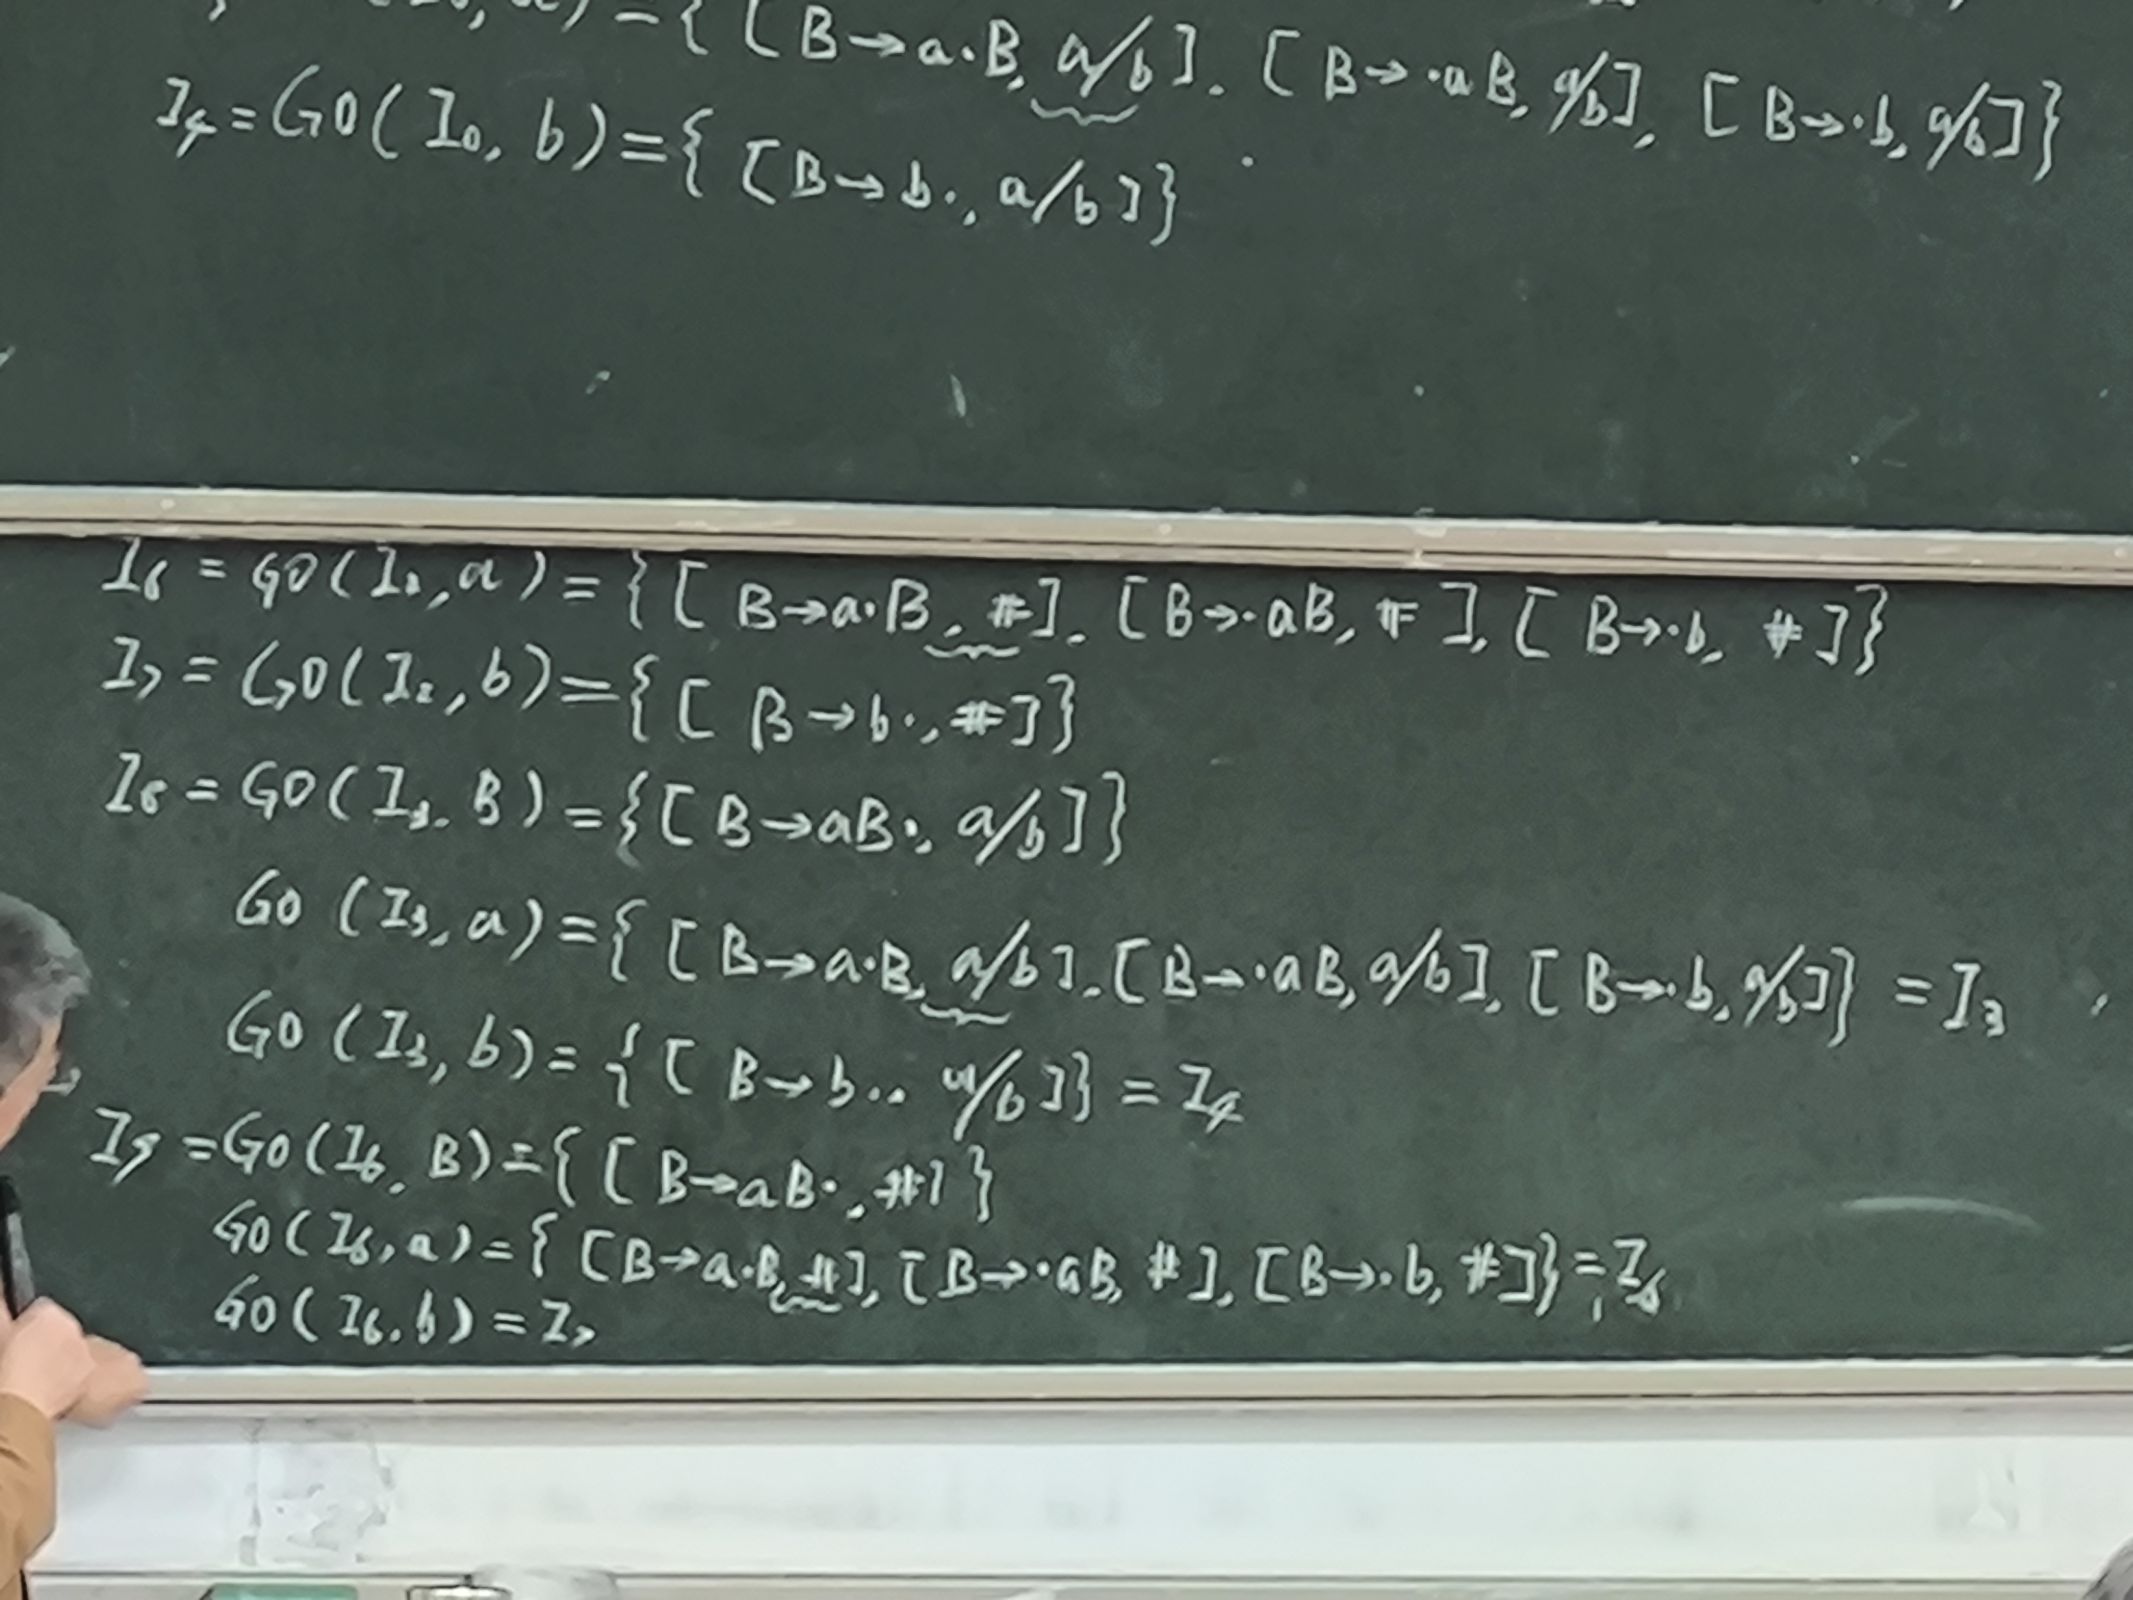 ={[B→a·B, a/b]. [B→·aB, a/b], [B→·b, a/b]}
I4=GO(I0, b)={[B→b·, a/b]}
I6=GO(I2,a)={[B→a·B, #]. [B→·aB, #], [B→·b, #]}
I7=GO(I2,b)={[B→b·,#]}
I8=GO(I3, B)={[B→aB·, a/b]}
GO(I3,a)={[B→a·B, a/b]. [B→·aB,a/b], [B→·b,a/b]}=I3
GO(I3,b)={[B→b·, a/b]}=I4
I9=GO(I6, B)={[B→aB·, #]}
GO(I6,a)={[B→a·B,#], [B→·aB, #], [B→·b, #]}=I6
GO(I6,b)=I7